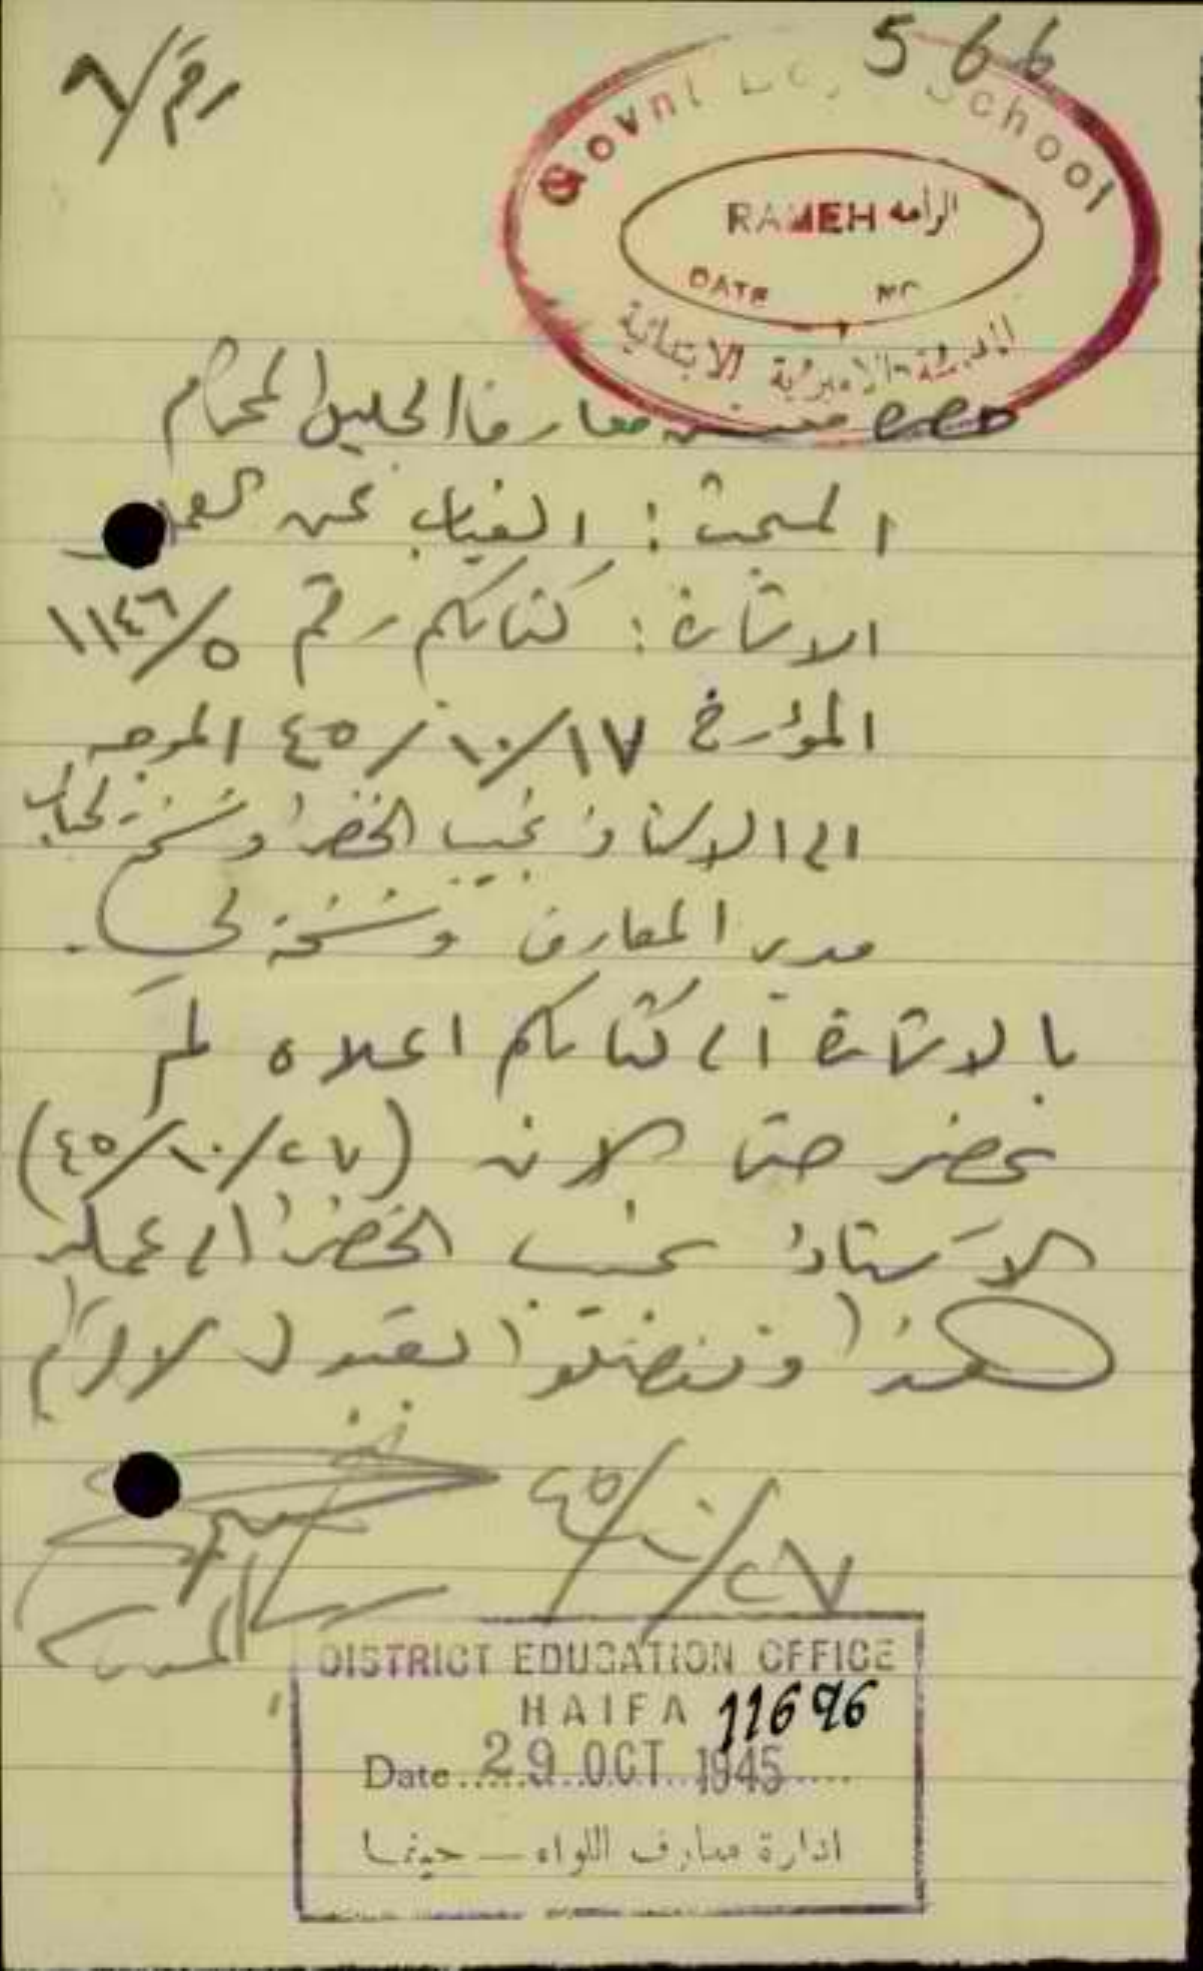 566
رقم / ٦
Govnt Boys School
RAMEH الرامه
DATE NO
المدرسة الاميرية الابتدائية
حضرة مفتش معارف الجليل المحترم
المبحث : الغياب عن العمل
الاشارة : كتابكم رقم ١١٤٦/٥
المؤرخ ١٧/١٠/٤٥ الموجه
الى الاستاذ نجيب الخضرا ونسخة لجناب
مدير المعارف ونسخة لي .
بالاشارة الى كتابكم اعلاه لم
يحضر حتى الان (٢٧/١٠/٤٥)
الاستاذ نجيب الخضرا الى عمله
هذا وتفضلوا بقبول الاحترام
٢٧/١٠/٤٥
DISTRICT EDUCATION OFFICE
HAIFA 11696
Date 29 OCT 1945
ادارة معارف اللواء — حيفا